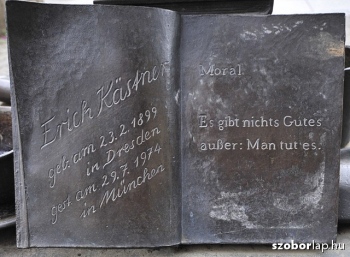 Erich Kästner
geb. am 23.2.1899
in Dresden
gest. am 29.7.1974
in München
Moral
Es gibt nichts Gutes
außer: Man tut es.
szoborlap.hu